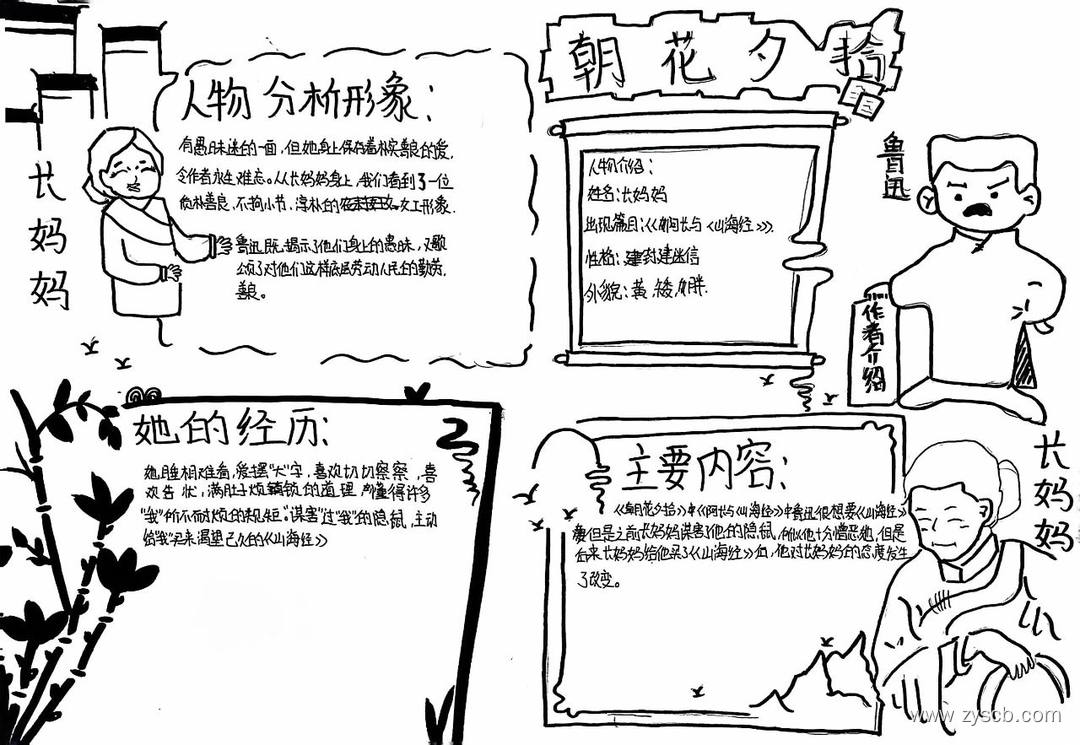 朝花夕拾
人物分析形象：
有愚昧迷的一面，但她身上保存着朴实善良的爱，
令作者永生难忘。从长妈妈身上，我们看到了一位
质朴善良，不拘小节，淳朴的女工形象．
鲁迅既揭示了他们身上的愚昧，又歌
颂了对他们这样底层劳动人民的勤劳，
善良。
长妈妈
人物介绍：
姓名：长妈妈
出现篇目：《阿长与《山海经》》．
性格：迷信
外貌：黄，矮，胖．
鲁迅
作者介绍
她的经历：
她睡相难看，爱摆“大”字，喜欢切切察察，喜
欢告状，满肚子烦琐的道理，懂得许多
“我”所不耐烦的规矩“谋害”过“我”的隐鼠，主动
给“我”买来渴望已久的《山海经》
主要内容：
《朝花夕拾》中《阿长与《山海经》中鲁迅很想要《山海经》
但是之前长妈妈谋害了他的隐鼠，所以他十分憎恶她，但是
后来长妈妈给他买了《山海经》后，他对长妈妈的态度发生
了改变。
长妈妈
www.zyscb.com